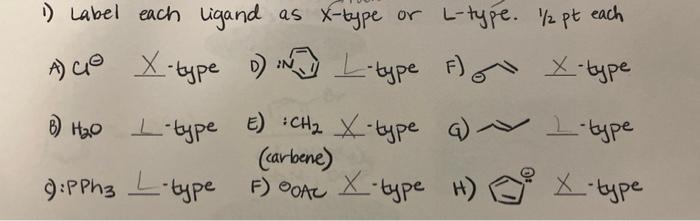 1) Label each ligand as X-type or L-type. 1/2 pt each
A) Cl⊖ X-type D) :N L-type F) ⊖ X-type
B) H2O L-type E) :CH2 X-type G) L-type
(carbene)
C) :PPh3 L-type F) ⊖OAc X-type H) ⊖ X-type